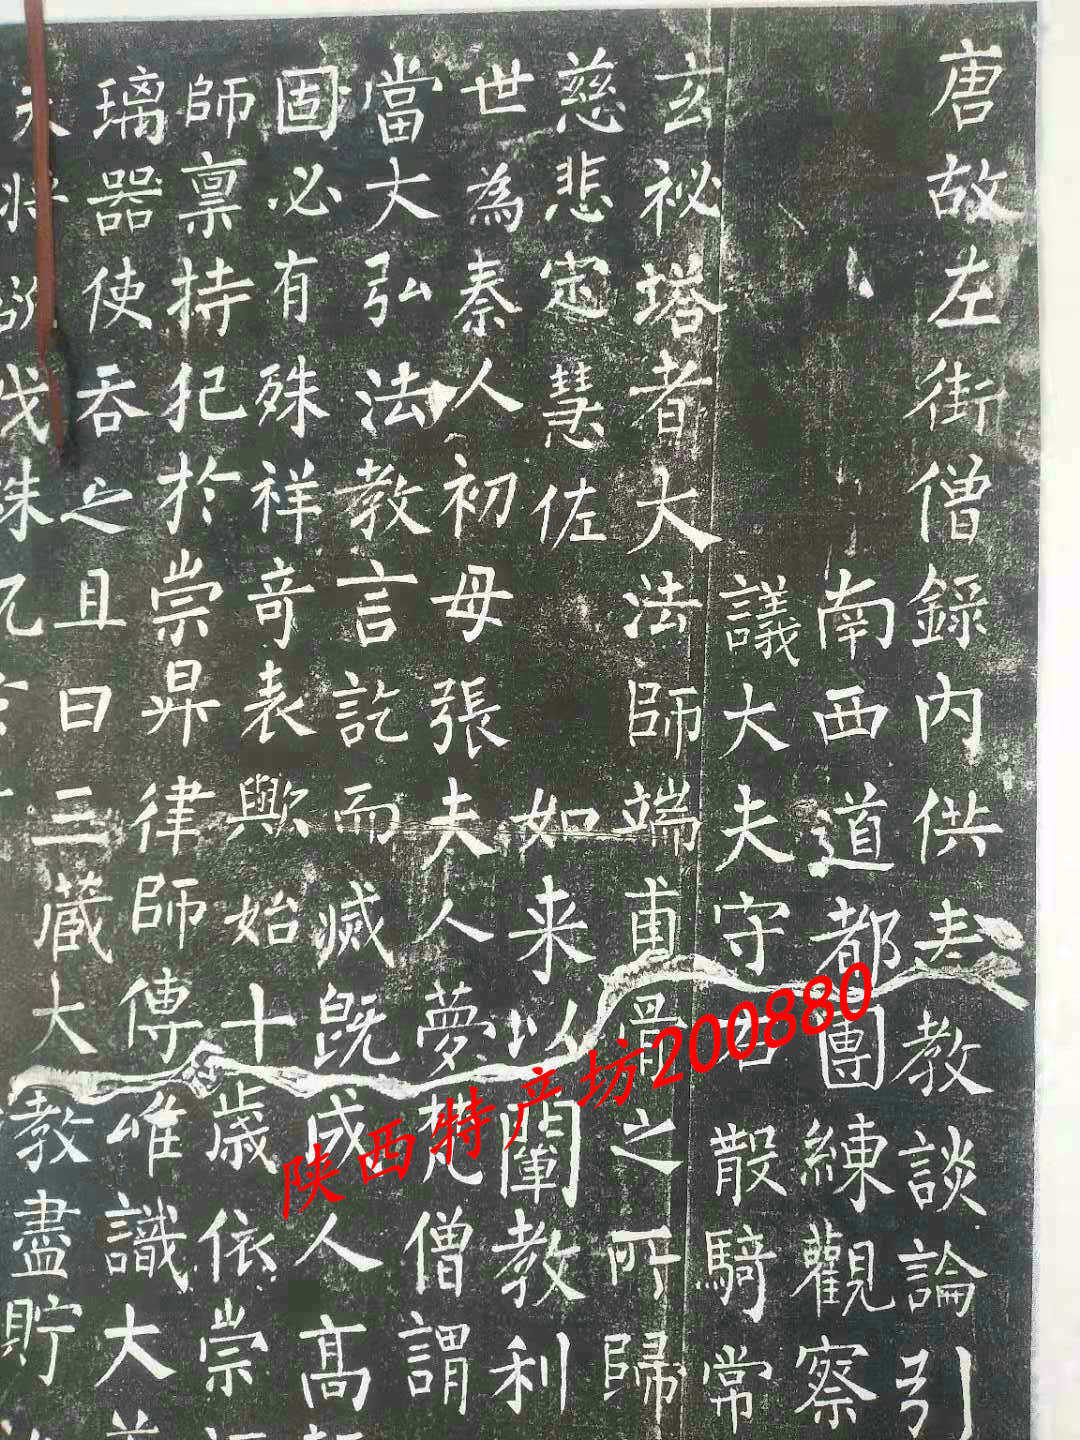 唐故左街僧錄內供奉教談論引
南西道都團練觀察
議大夫守右散騎常
玄祕塔者大法師端甫骨之所歸
慈悲定慧佐
如来以闡教利
世為秦人初母張夫人夢梵僧謂
當大弘法教言訖而滅既成人高
固必有殊祥奇表歟始十歲依崇
師稟持犯於崇昇律師傳唯識大
璃器使吞之且曰三藏大教盡貯
陕西特产坊200880